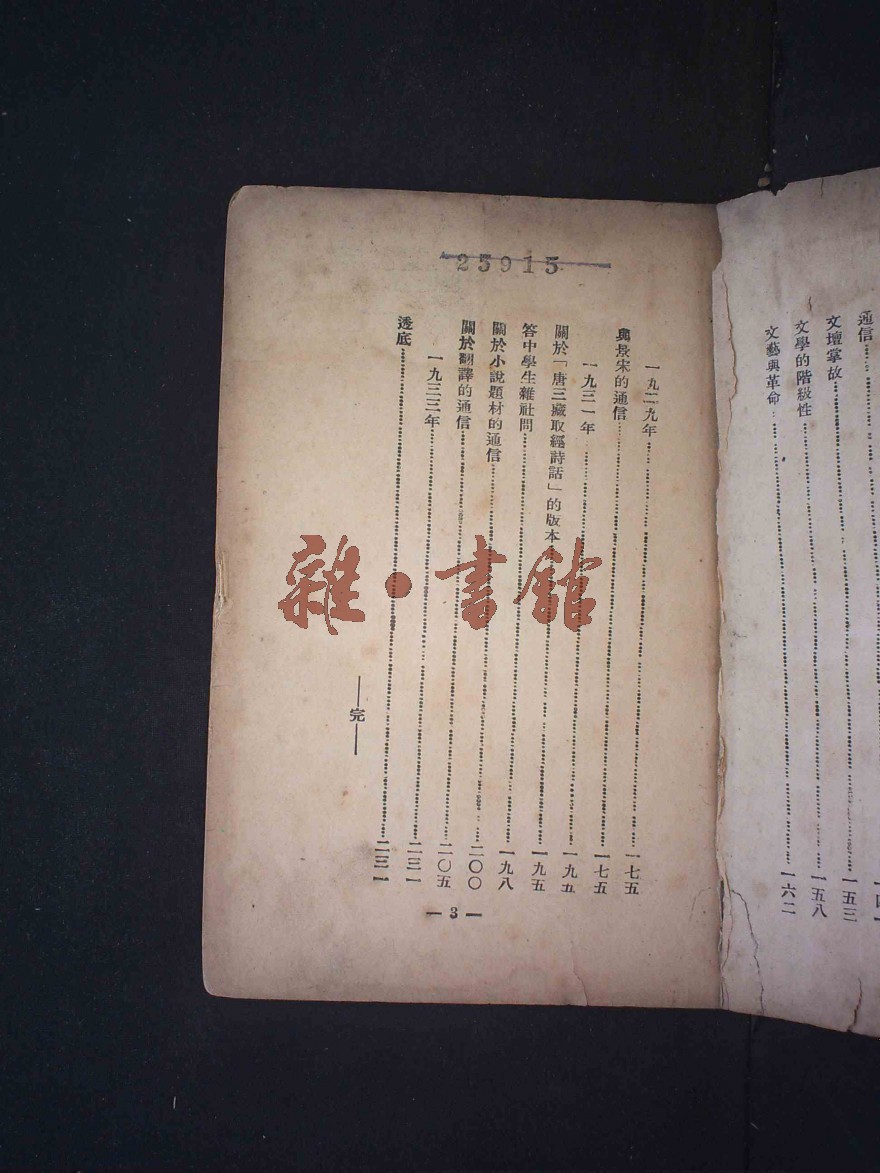 通信
文壇掌故……一五三
文學的階級性……一五八
文藝與革命……一六二
25915
一九二九年……一七五
與景宋的通信……一七五
一九三一年……一九五
關於「唐三藏取經詩話」的版本……一九五
答中學生雜社問……一九八
關於小說題材的通信……二〇〇
關於翻譯的通信……二〇五
一九三三年……二三一
透底……二三一
——完——
— 3 —
雜·書館